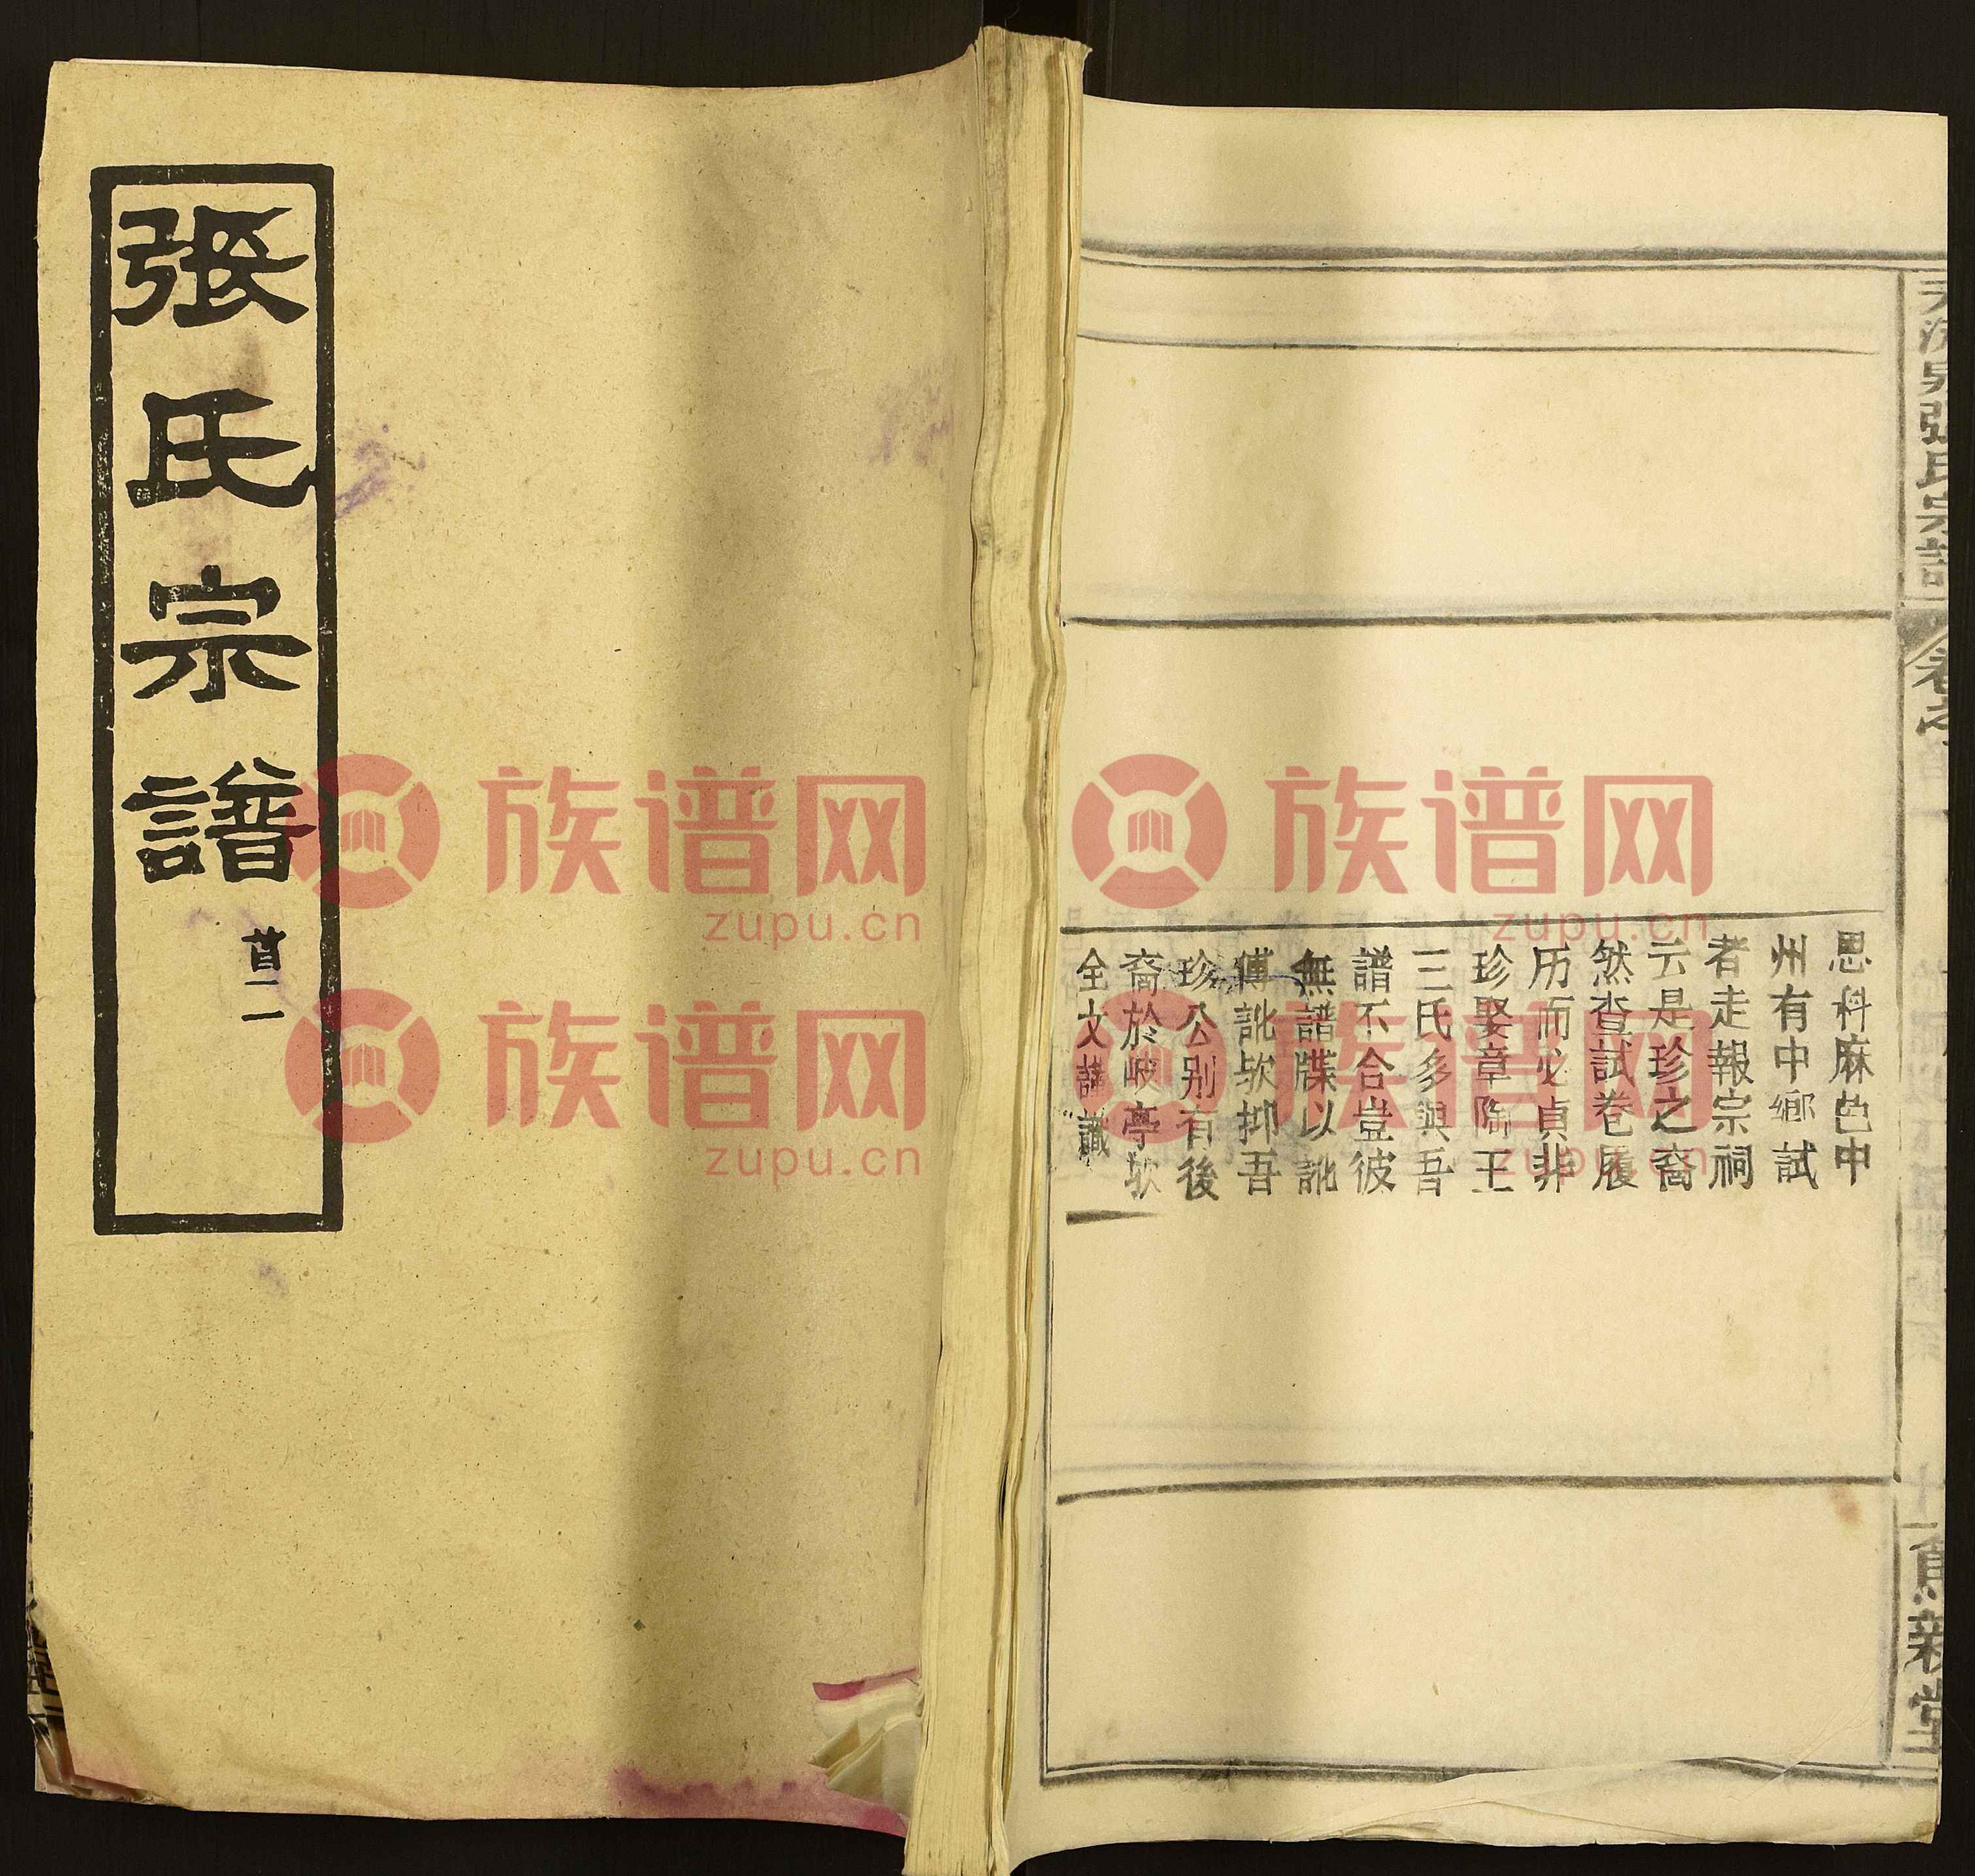 張氏宗譜
首二
族谱网
zupu.cn
族谱网
zupu.cn
族谱网
zupu.cn
族谱网
zupu.cn
張氏宗譜
卷之
親堂
恩科麻邑中
州有中鄉試
者走報宗祠
云是珍之裔
然查試卷履
历而必貞非
珍娶章陶王
三氏多與吾
譜不合豈彼
無譜牒以訛
傳訛欤抑吾
珍公别有後
裔於岐亭欤
全文謹識